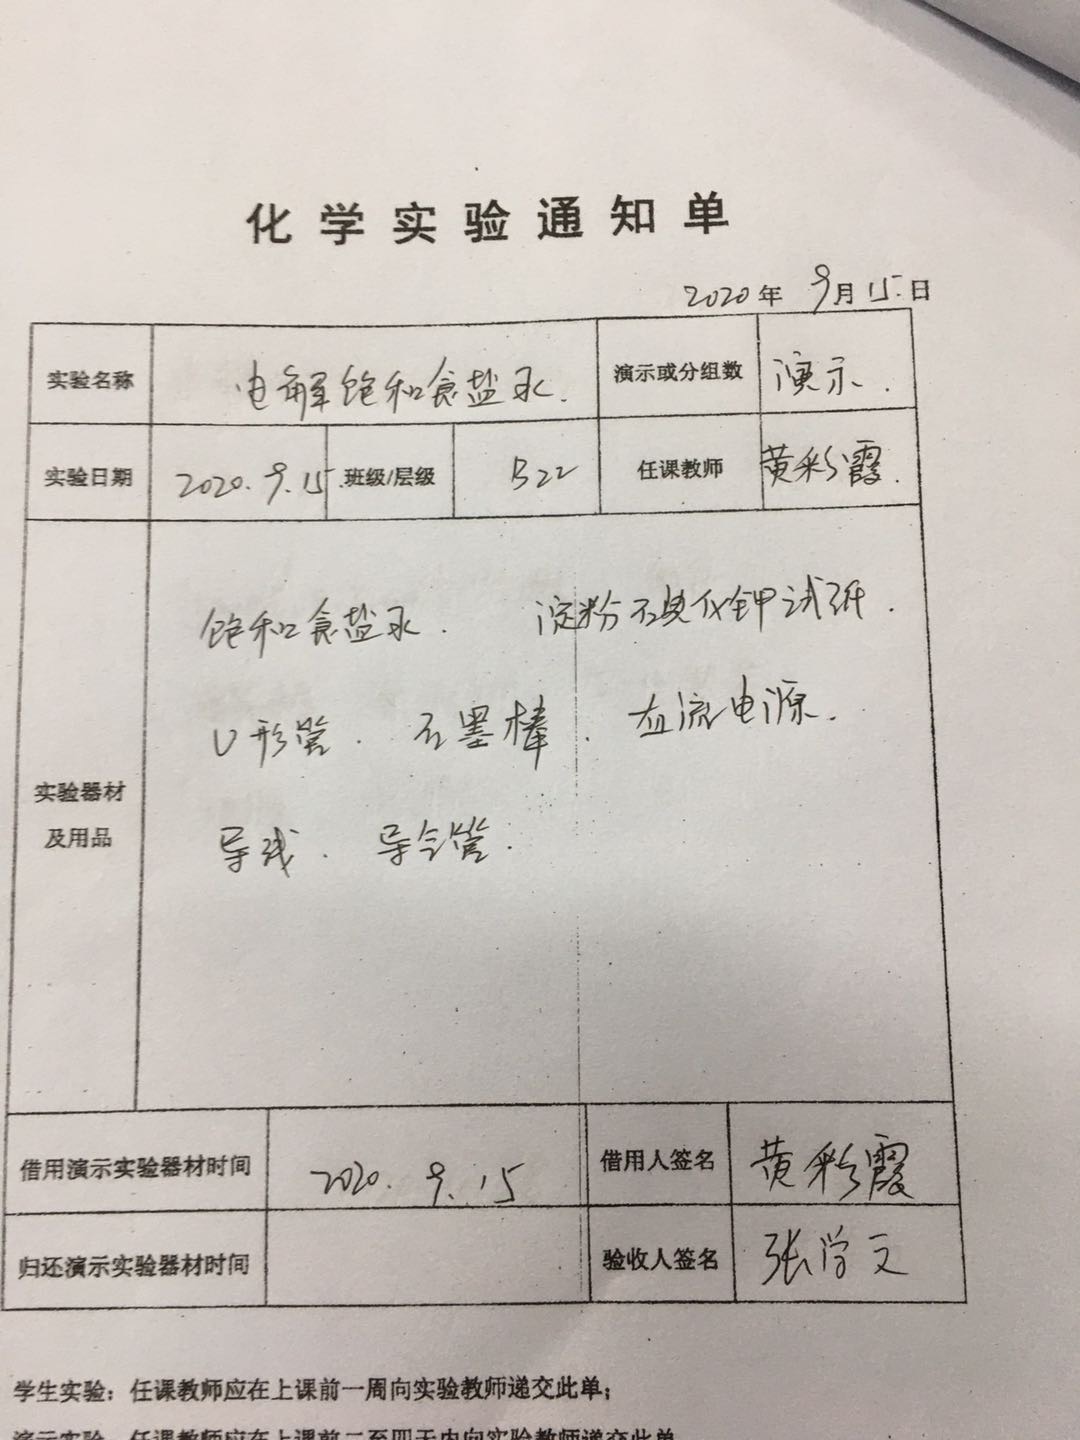 化学实验通知单
2020年 9月15日
实验名称 电解饱和食盐水. 演示或分组数 演示.
实验日期 2020.9.15. 班级/层级 B22 任课教师 黄彩霞.
饱和食盐水. 淀粉碘化钾试纸.
U形管. 石墨棒. 直流电源.
实验器材
及用品
导线. 导气管.
借用演示实验器材时间 2020.9.15 借用人签名 黄彩霞
归还演示实验器材时间 验收人签名 张学文
学生实验：任课教师应在上课前一周向实验教师递交此单；
演示实验 任课教师应在上课前二至四天内向实验教师递交此单